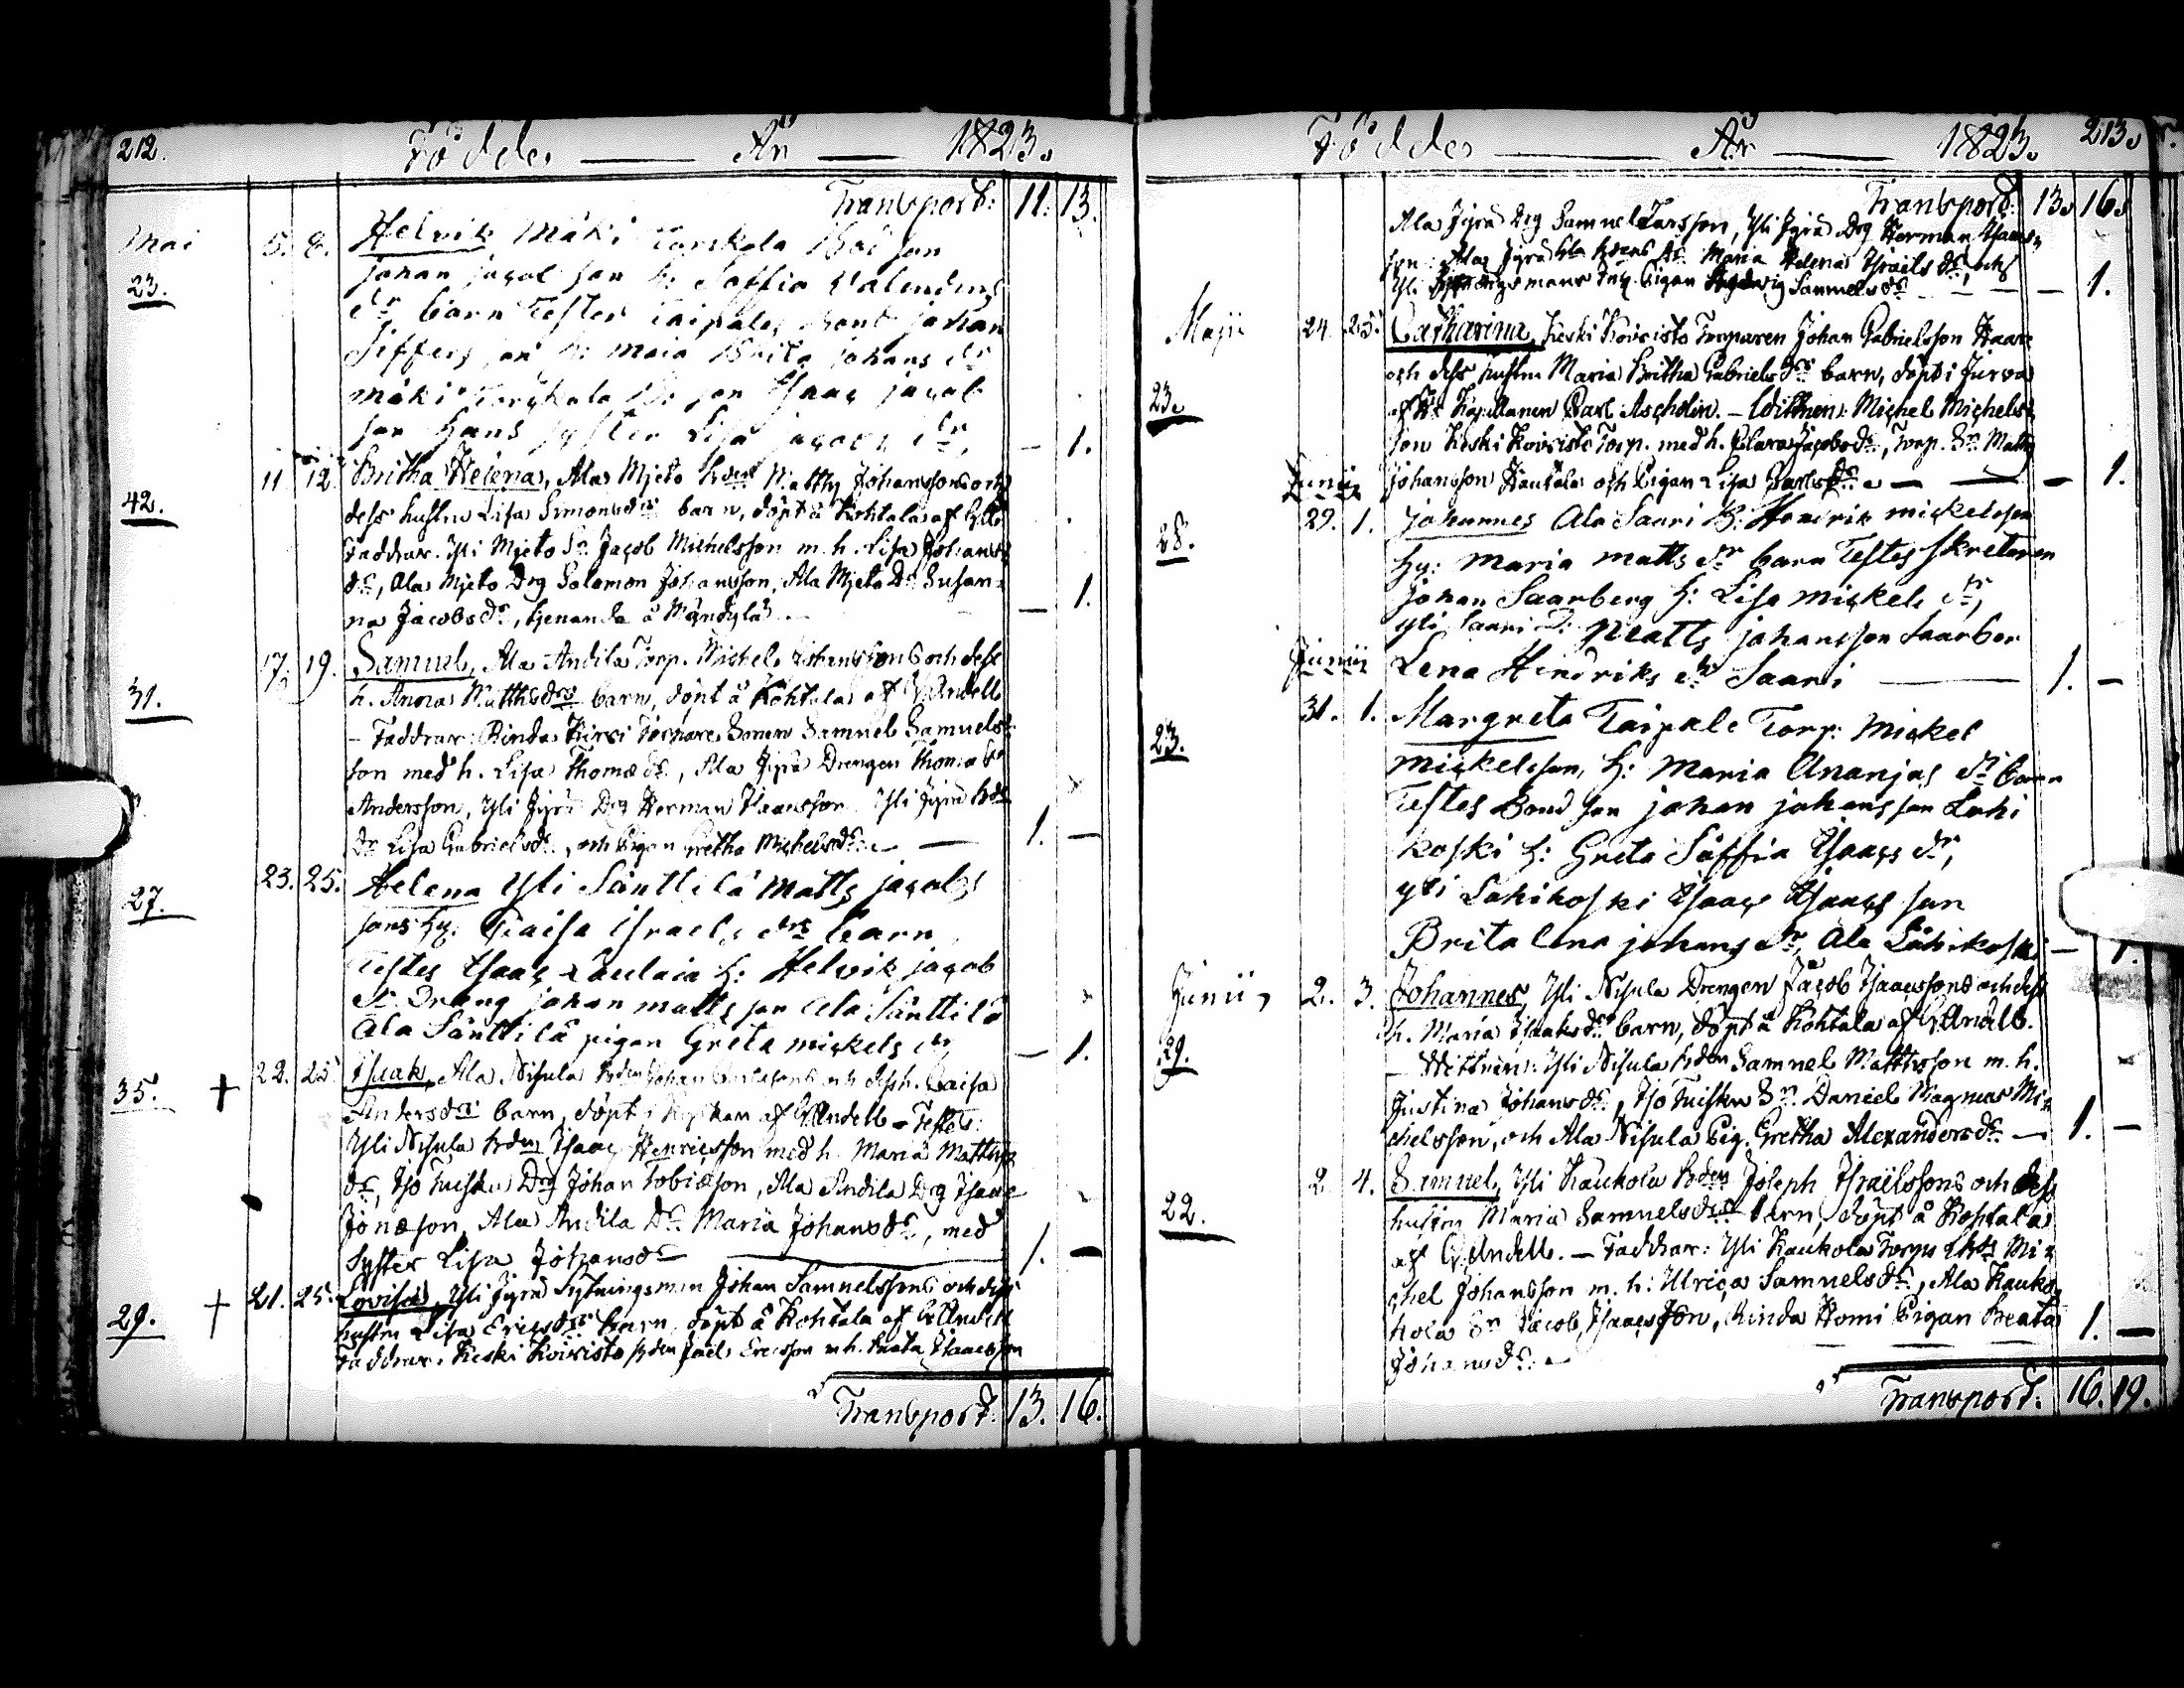 212. Födde, — År — 1823.
Transport: 11. 13.
Mai 5. 8. Helvik Mäki Torkola Bod son
23. johan jacob son h: Soffia Valendins
dr barn Testes Taipale, Bond johan
Siffers son h: Maia Brita johans dr
mäki Torkola B: son Isaac jacob
son hans syster Lisa jacobs dr, — 1.
11. 12. Britha Helena, Ala Mjeto Bdens Matths Johanssons och
42. dess hustru Lisa Simonsdrs barn, döpt å Kohtala af G. And.
Faddrar. Yli Mjeto Sn Jacob Michelsson m. h. Lisa Johans
dr, Ala Mjeto Drg Salomon Johansson, Ala Mjeto Dr. Susan-
na Jacobsdr, tjenande å Mändylä — 1.
17. 19. Samuel, Ala Andila Torp. Michel Johanssons och dess
31. h. Anna Mattsdrs barn, döpt å Kohtala af G. Andell
– Faddrar: Rinda Kirsi Torpare Sonen Samuel Samuels-
son med h. Lisa Thomædr, Ala Jyrä Drengen Thomas
Andersson, Yli Jyrä Drg Herman Isaacsson Yli Jyrä Bde
Dr Lisa Gabrielsdr, och Pigan Gretha Michelsdr. — 1. —
23. 25. Helena Yli Sänttilä Matts jacobs
27. sons hu: Caisa Israels drs barn
Testes Isaac Laulaia h: Helvik jacob
dr Dräng johan matts son Ala Sänttilä
Ala Sänttilä pigan Greta mickels dr, — 1.
35. + 22. 25. Isaak, Ala Nisula Bden Johan och dess h. Caisa
Andersdrs barn, döpt i Kyrkan af G. Andell – Testes:
Yli Nisula Bden Isaac Henricsson med h. Maria Matths
dr, Iso Tuisku Drg Johan Tobiæson, Ala Andila Drg Isaac
Jonæson, Ala Andila Dr. Maria Johansdr, med
Syster Lisa Johansdr — 1. —
29. + 21. 25. Lovisa, Yli Jyrä Sytningsman Johan Samuelssons och dess
hustru Lisa Ericsdrs barn, döpt å Kohtala af G. Andell
Faddrar. Keski Koivisto Bden Joël Ericsson m h. Isaacsson
Transport: 13. 16.
Födde, — År — 1823. 213.
Transport: 13. 16.
Ala Jyrä Drg Samuel Larsson, Yli Jyrä Drg Herman Isaacs-
son, Ala Jyrä Bdens dr. Maria Helena Israels dr, och
Yli Sytningsmans Pigan Hedwig Samuelsdr — 1.
Maji 24. 25. Catharina, Keski Koivisto Torparen Johan Gabrielsson Haare
och dess hustru Maria Britha Gabrielsdrs barn, döpt i Jurva
23. af Hr Kapellanen Carl Ascholin. – Wittnen: Michel Michels-
son Keski Koivisto Torp. med h. Clara Jacobsdr, Torp. Sn Matts
Johansson Hautala och Pigan Lisa Carlsdr. — 1.
Junii
29. 1. Johannes Ala Saari B: Hendrik mickelsson
28. hu: maria matts dr barn Testes Skretaren
johan Saarberg h: Lisa mickels dr,
yli Saari D: Matts johansson Saarber
Lena Hendriks dr Saari — 1. —
Junii
31. 1. Margreta Taipale Torp: Mickel
23. mickelsson, h: Maria Ananjas dr barn
Testes Bond son johan johansson Lahi
koski h: Greta Saffia Isaacs dr,
yli Lahikoski Isaac Isaacs son
Brita lena johans dr, Ala Lähikoski — 1.
Junii, 2. 3. Johannes, Yli Nisula Drengen Jacob Isaacssons och dess
h. Maria Isaaksdrs barn, döpt å Kohtala af G. Andell.
29. – Wittnen: Yli Nisula Bden Samuel Mattsson m. h.
Justina Johansdr, Iso Tuisku Sn. Daniel Magnus Mi-
chelsson, och Ala Nisula Pig. Gretha Alexandersdr. — 1. —
2. 4. Samuel, Yli Kaukola Bden Joseph Israëlssons och dess
22. hustru Maria Samuelsdrs barn, döpt å Kohtala
af G. Andell. – Faddrar: Yli Kaukola Mi-
chel Johansson m. h: Ulrica Samuelsdr, Ala Kauko-
kola Sn Jacob Isaacsson, Rinda Homi Pigan Beata
Johansdr. — 1. —
Transport: 16. 19.